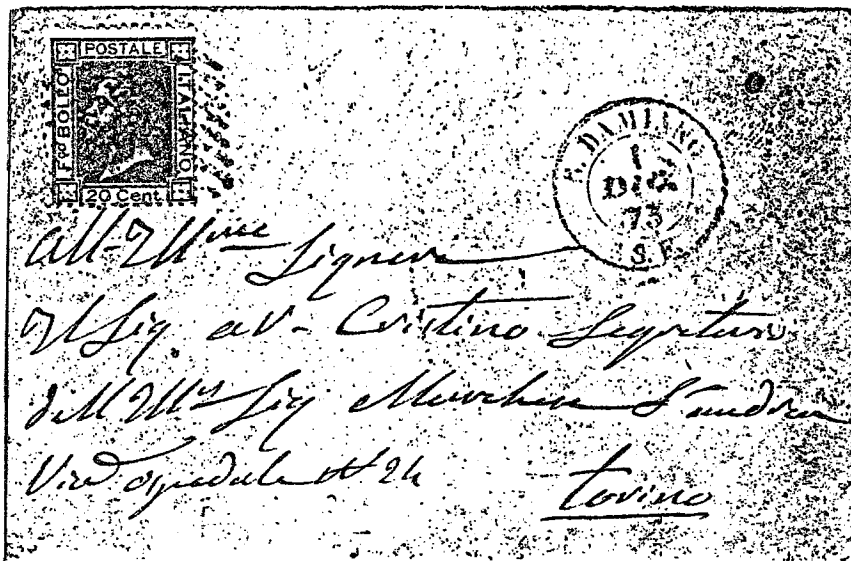 POSTALE
FCO BOLLO
ITALIANO
20 Cent
S. DAMIANO
1
DIC
73
S. F.
All-Ill.me Signore
Il Sig. av- Cristino Segretaro
dell Ill. Sig Marchese
Via ospedale N 24
Torino